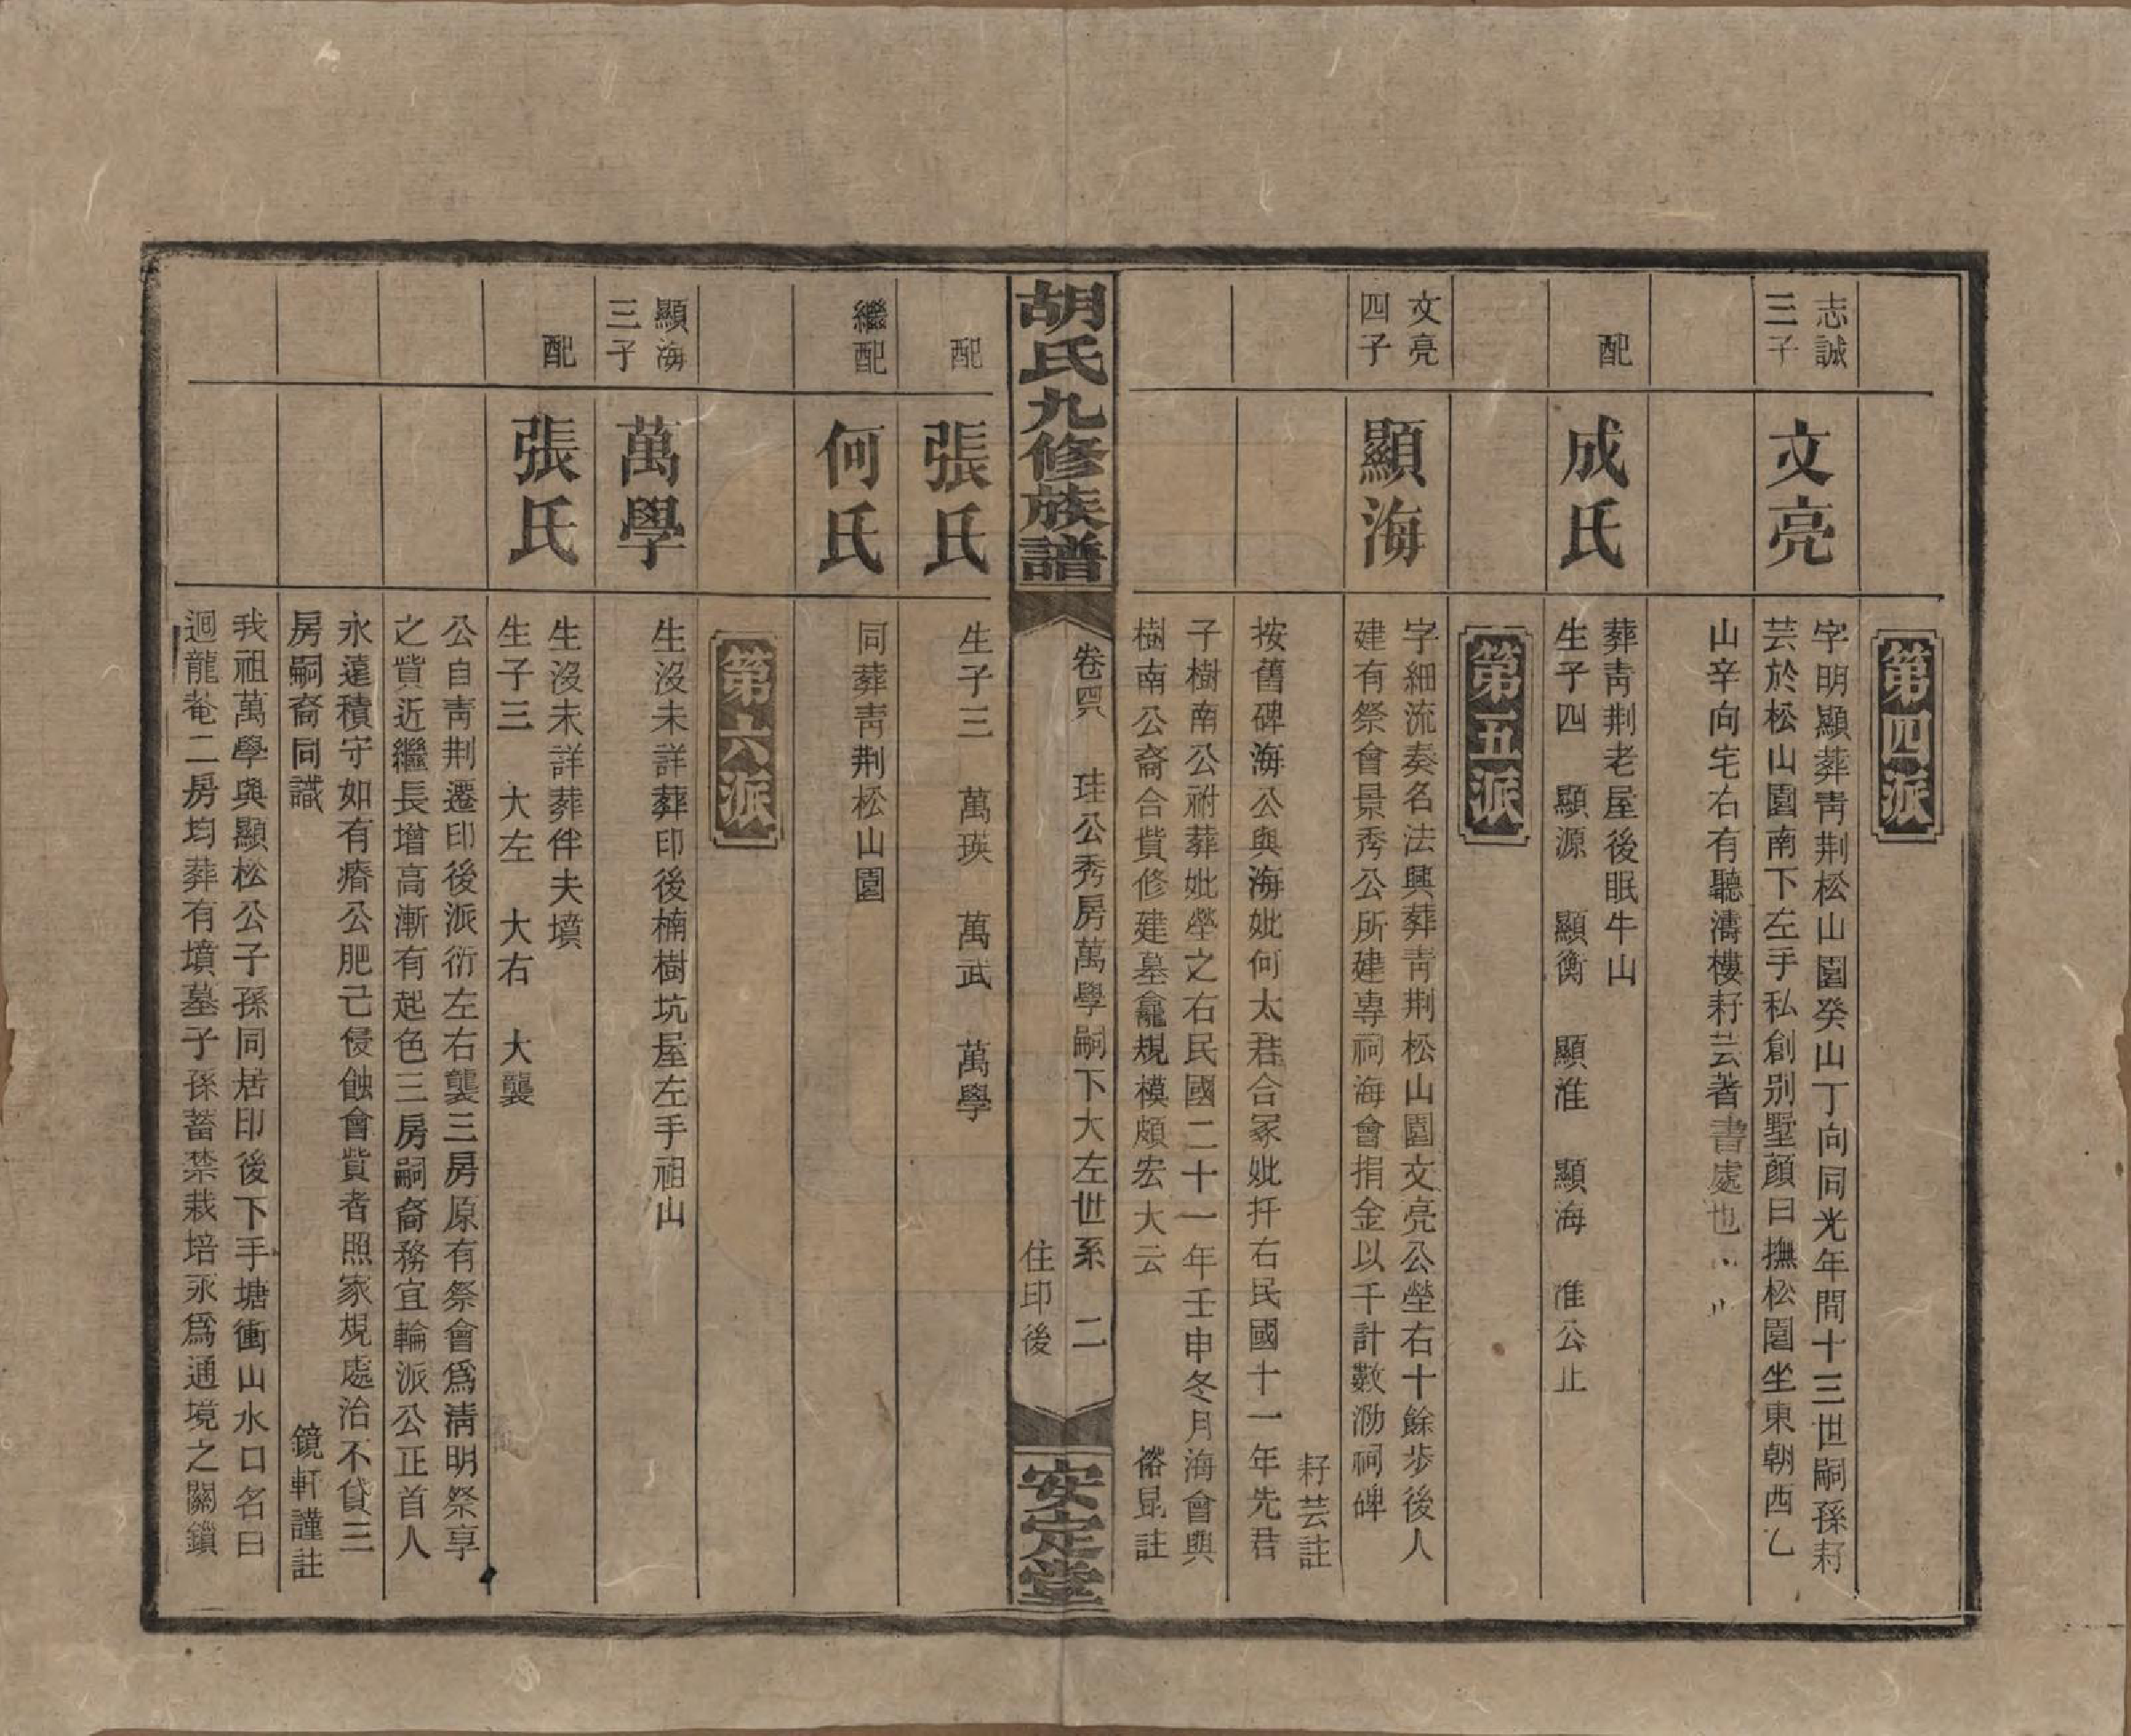 第四派
志誠
三子
文亮
字明顯葬靑荆松山園癸山丁向同光年間十三世嗣孫耔
芸於松山園南下左手私創别墅顔曰撫松園坐東朝西乙
山辛向宅右有聽濤樓耔芸著書處也
配
成氏
葬靑荆老屋後眠牛山
生子四　顯源　顯衡　顯淮　顯海　淮公止
第五派
文亮
四子
顯海
字細流奏名法興葬靑荆松山園文亮公塋右十餘步後人
建有祭會景秀公所建專祠海會捐金以千計數泐祠碑
耔芸註
按舊碑海公與海妣何太君合冢妣扦右民國十一年先君
子樹南公祔葬妣塋之右民國二十一年壬申冬月海會與
樹南公裔合貲修建墓龕規模頗宏大云　裕昆註
胡氏九修族譜
卷四　珪公秀房萬學嗣下大左世系　二
住印後
安定堂
配
張氏
生子三　萬瑛　萬武　萬學
繼配
何氏
同葬靑荆松山園
第六派
顯海
三子
萬學
生沒未詳葬印後楠樹坑屋左手祖山
配
張氏
生沒未詳葬伴夫墳
生子三　大左　大右　大襲
公自靑荆遷印後派衍左右襲三房原有祭會爲淸明祭享
之貲近繼長增高漸有起色三房嗣裔務宜輪派公正首人
永遠積守如有瘠公肥己侵蝕會貲者照家規處治不貸三
房嗣裔同識　鏡軒謹註
我祖萬學與顯松公子孫同居印後下手塘衝山水口名曰
迴龍菴二房均葬有墳墓子孫蓄禁栽培永爲通境之關鎖